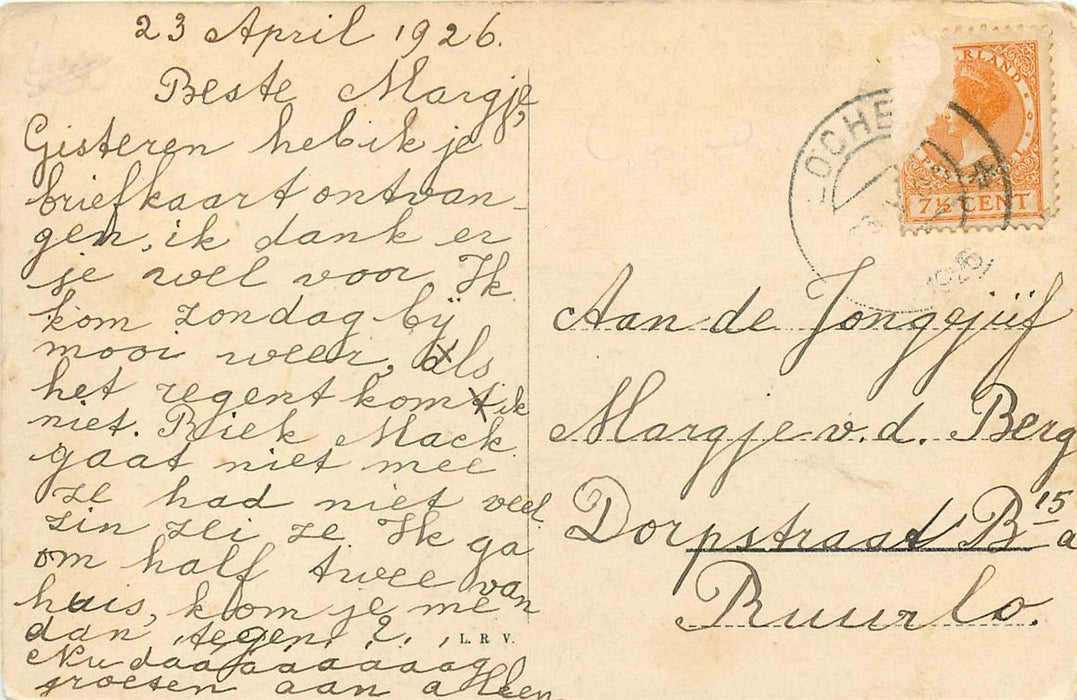 23 April 1926.
Beste Margje,
Gisteren heb ik je
briefkaart ontvan-
gen, ik dank er
je wel voor Ik
kom zondag bij
mooi weer, als
het regent kom ik
niet. Riek Mack
gaat niet mee
ze had niet veel
zin zei ze Ik ga
om half twee van
huis, kom je me
dan tegen?
Nu daaaaaaaaag
groeten aan alleen
L. R. V.
LOCHE
1926
RLAND
7½ CENT
Aan de Jongejüf
Margje v. d. Berg
Dorpstraat B 15 a
Ruurlo.